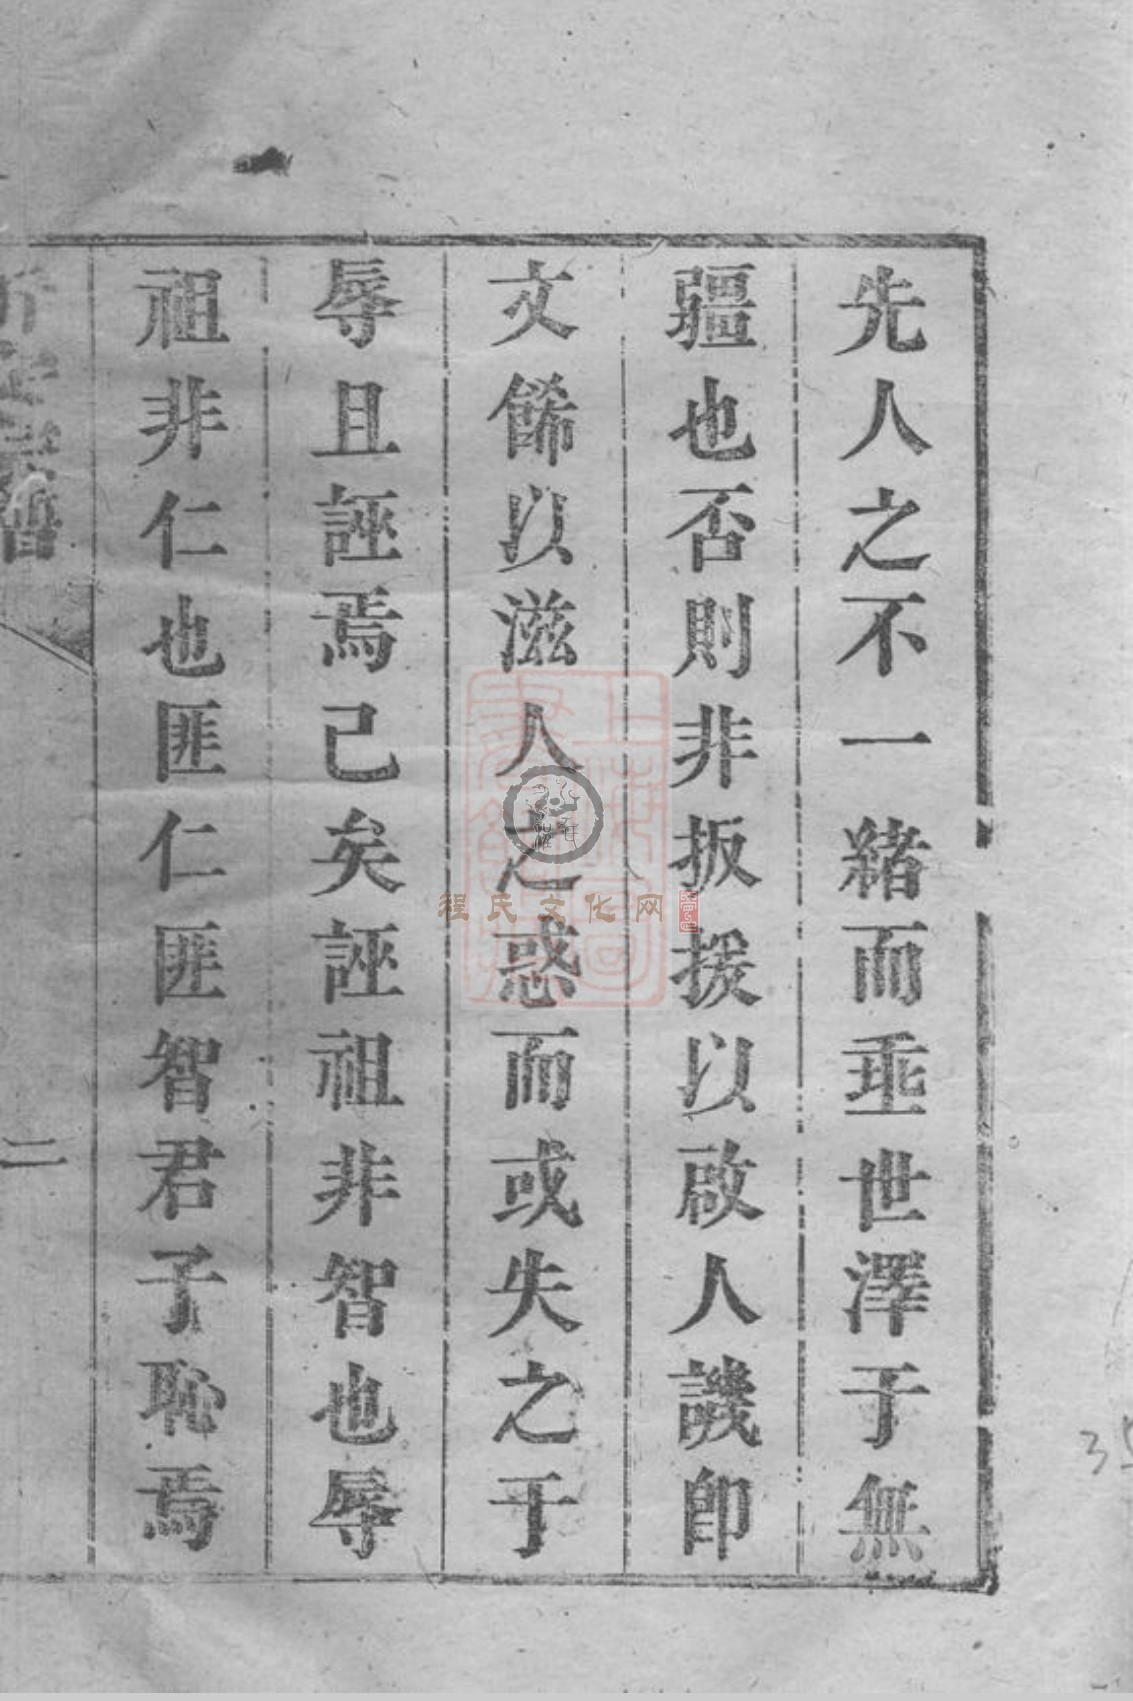 先人之不一緒而垂世澤于無
疆也否則非扳援以啟人譏卽
文餙以滋人之惑而或失之于
辱且誣焉己矣誣祖非智也辱
祖非仁也匪仁匪智君子恥焉
二
程氏文化网
35